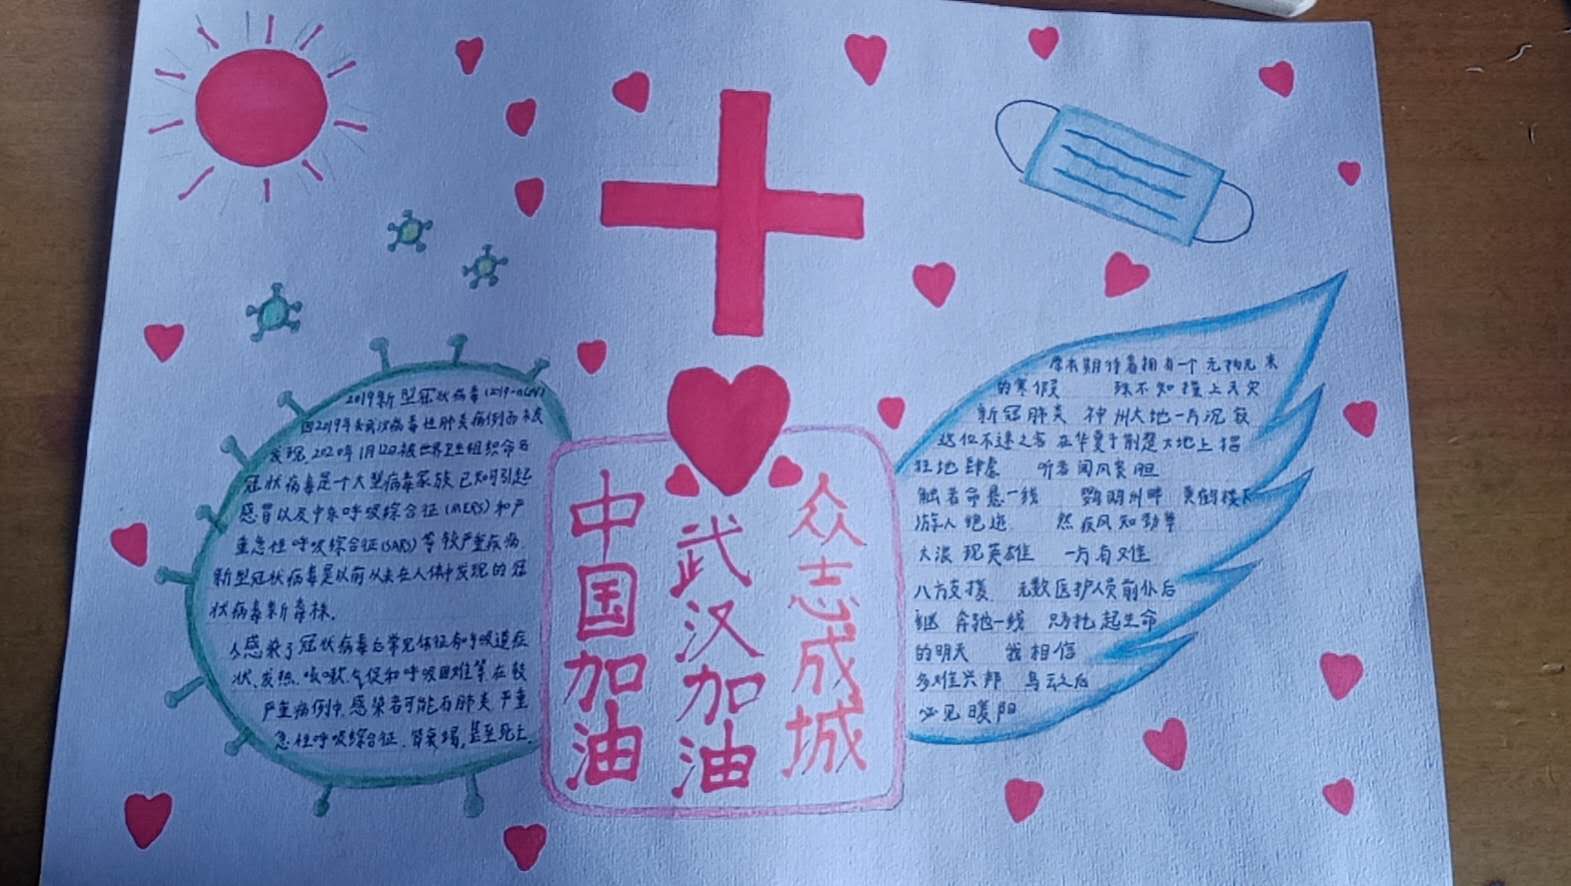 2019新型冠状病毒(2019-nCoV)
因2019年武汉病毒性肺炎病例而被
发现,2020年1月12日被世界卫生组织命名
冠状病毒是一个大型病毒家族,已知可引起
感冒以及中东呼吸综合征(MERS)和严
重急性呼吸综合征(SARS)等较严重疾病.
新型冠状病毒是以前从未在人体中发现的冠
状病毒新毒株。
人感染了冠状病毒后常见体征有呼吸道症
状、发热、咳嗽、气促和呼吸困难等.在较
严重病例中,感染者可能有肺炎、严重
急性呼吸综合征、肾衰竭,甚至死亡.
中国加油
武汉加油
众志成城
原本期待着拥有一个无拘无束
的寒假 殊不知撞上天灾
新冠肺炎 神州大地一片沉寂
这位不速之客 在华夏于荆楚大地上猖
狂地肆虐 听者闻风丧胆
触者命悬一线 鹦鹉洲畔 黄鹤楼下
游人绝迹 然疾风知劲草
大浪现英雄 一方有难
八方支援 无数医护人员前仆后
继 奔驰一线 只为托起生命
的明天 我相信
多难兴邦 乌云之后
必见暖阳